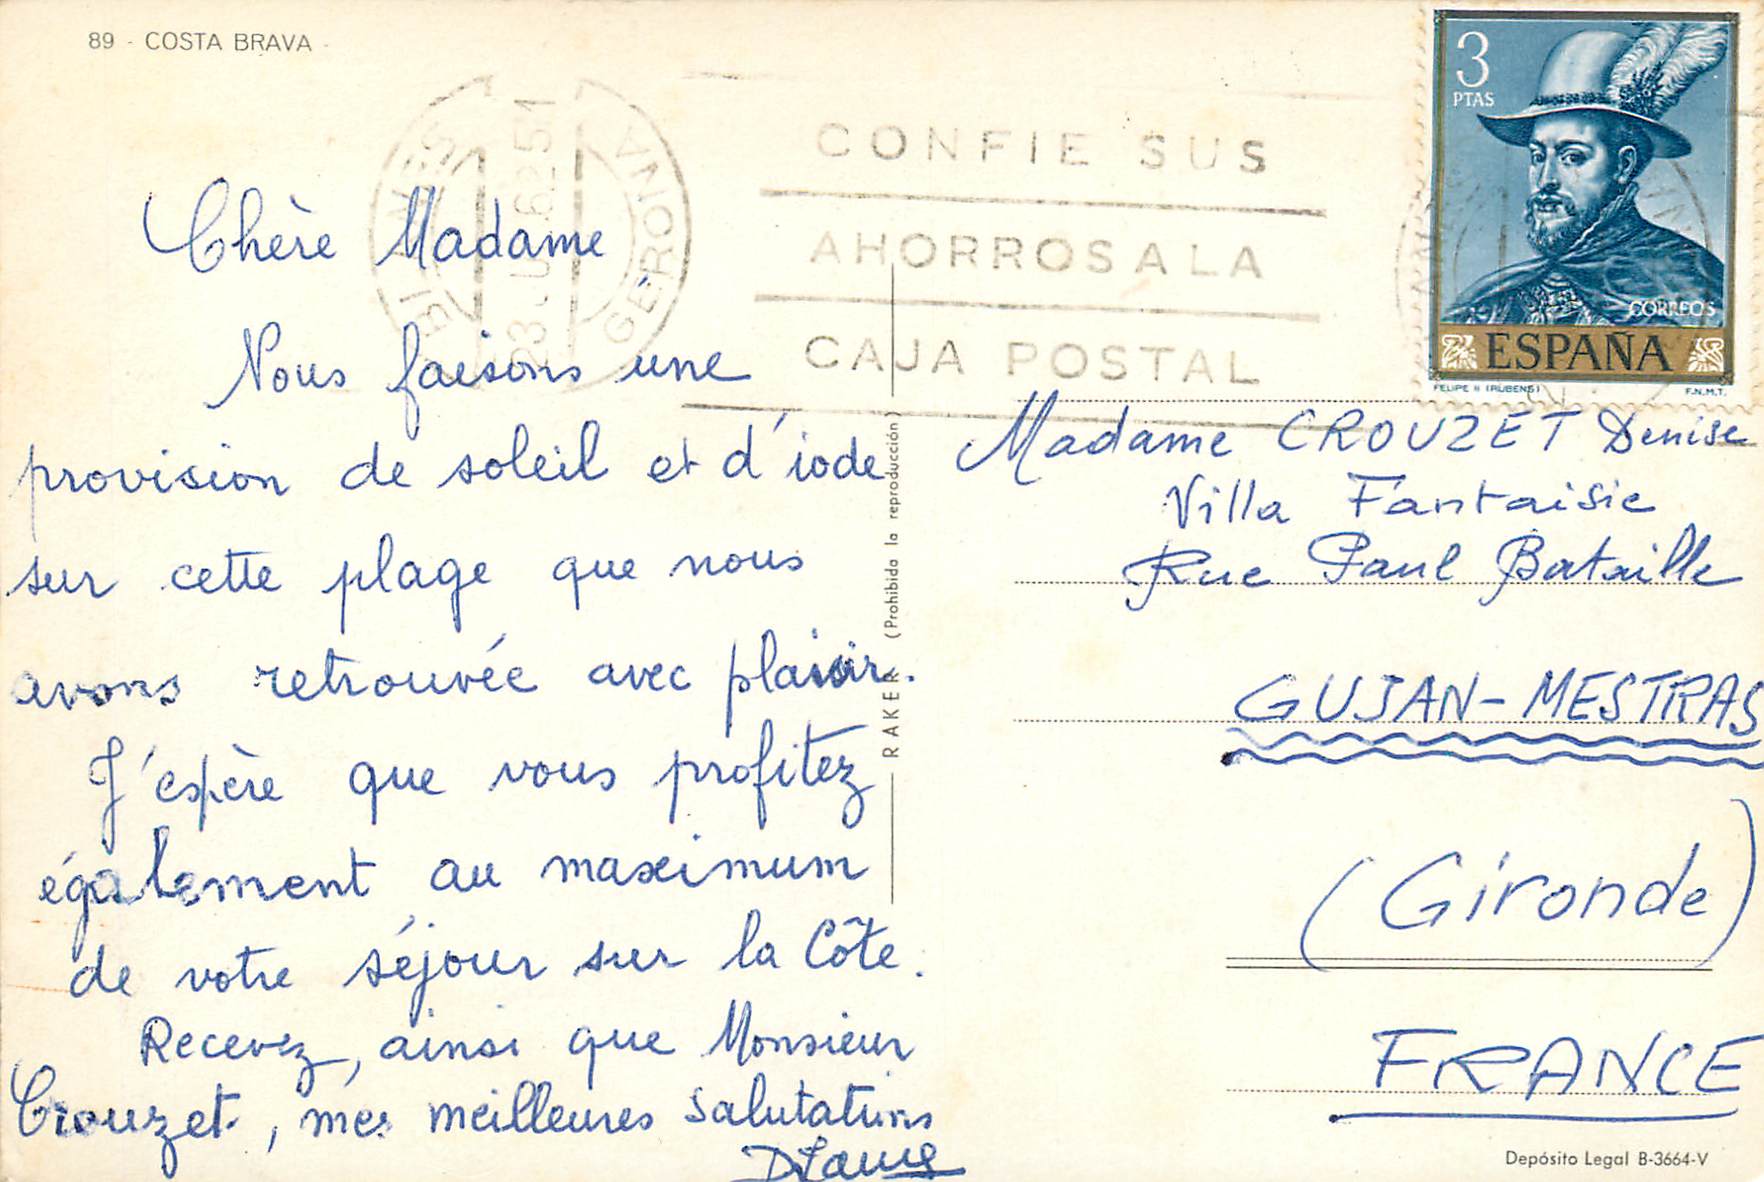 89 - COSTA BRAVA -
BLANES
GERONA
CONFIE SUS
AHORROS A LA
CAJA POSTAL
3
PTAS
CORREOS
ESPAÑA
FELIPE II (RUBENS)
F.N.M.T.
Chère Madame
Nous faisons une
provision de soleil et d'iode
sur cette plage que nous
avons retrouvée avec plaisir.
J'espère que vous profitez
également au maximum
de votre séjour sur la Côte.
Recevez, ainsi que Monsieur
Crouzet, mes meilleures salutations
RAKER (Prohibida la reproducción)
Madame CROUZET Denise
Villa Fantaisie
Rue Paul Bataille
GUJAN-MESTRAS
(Gironde)
FRANCE
Depósito Legal B-3664-V